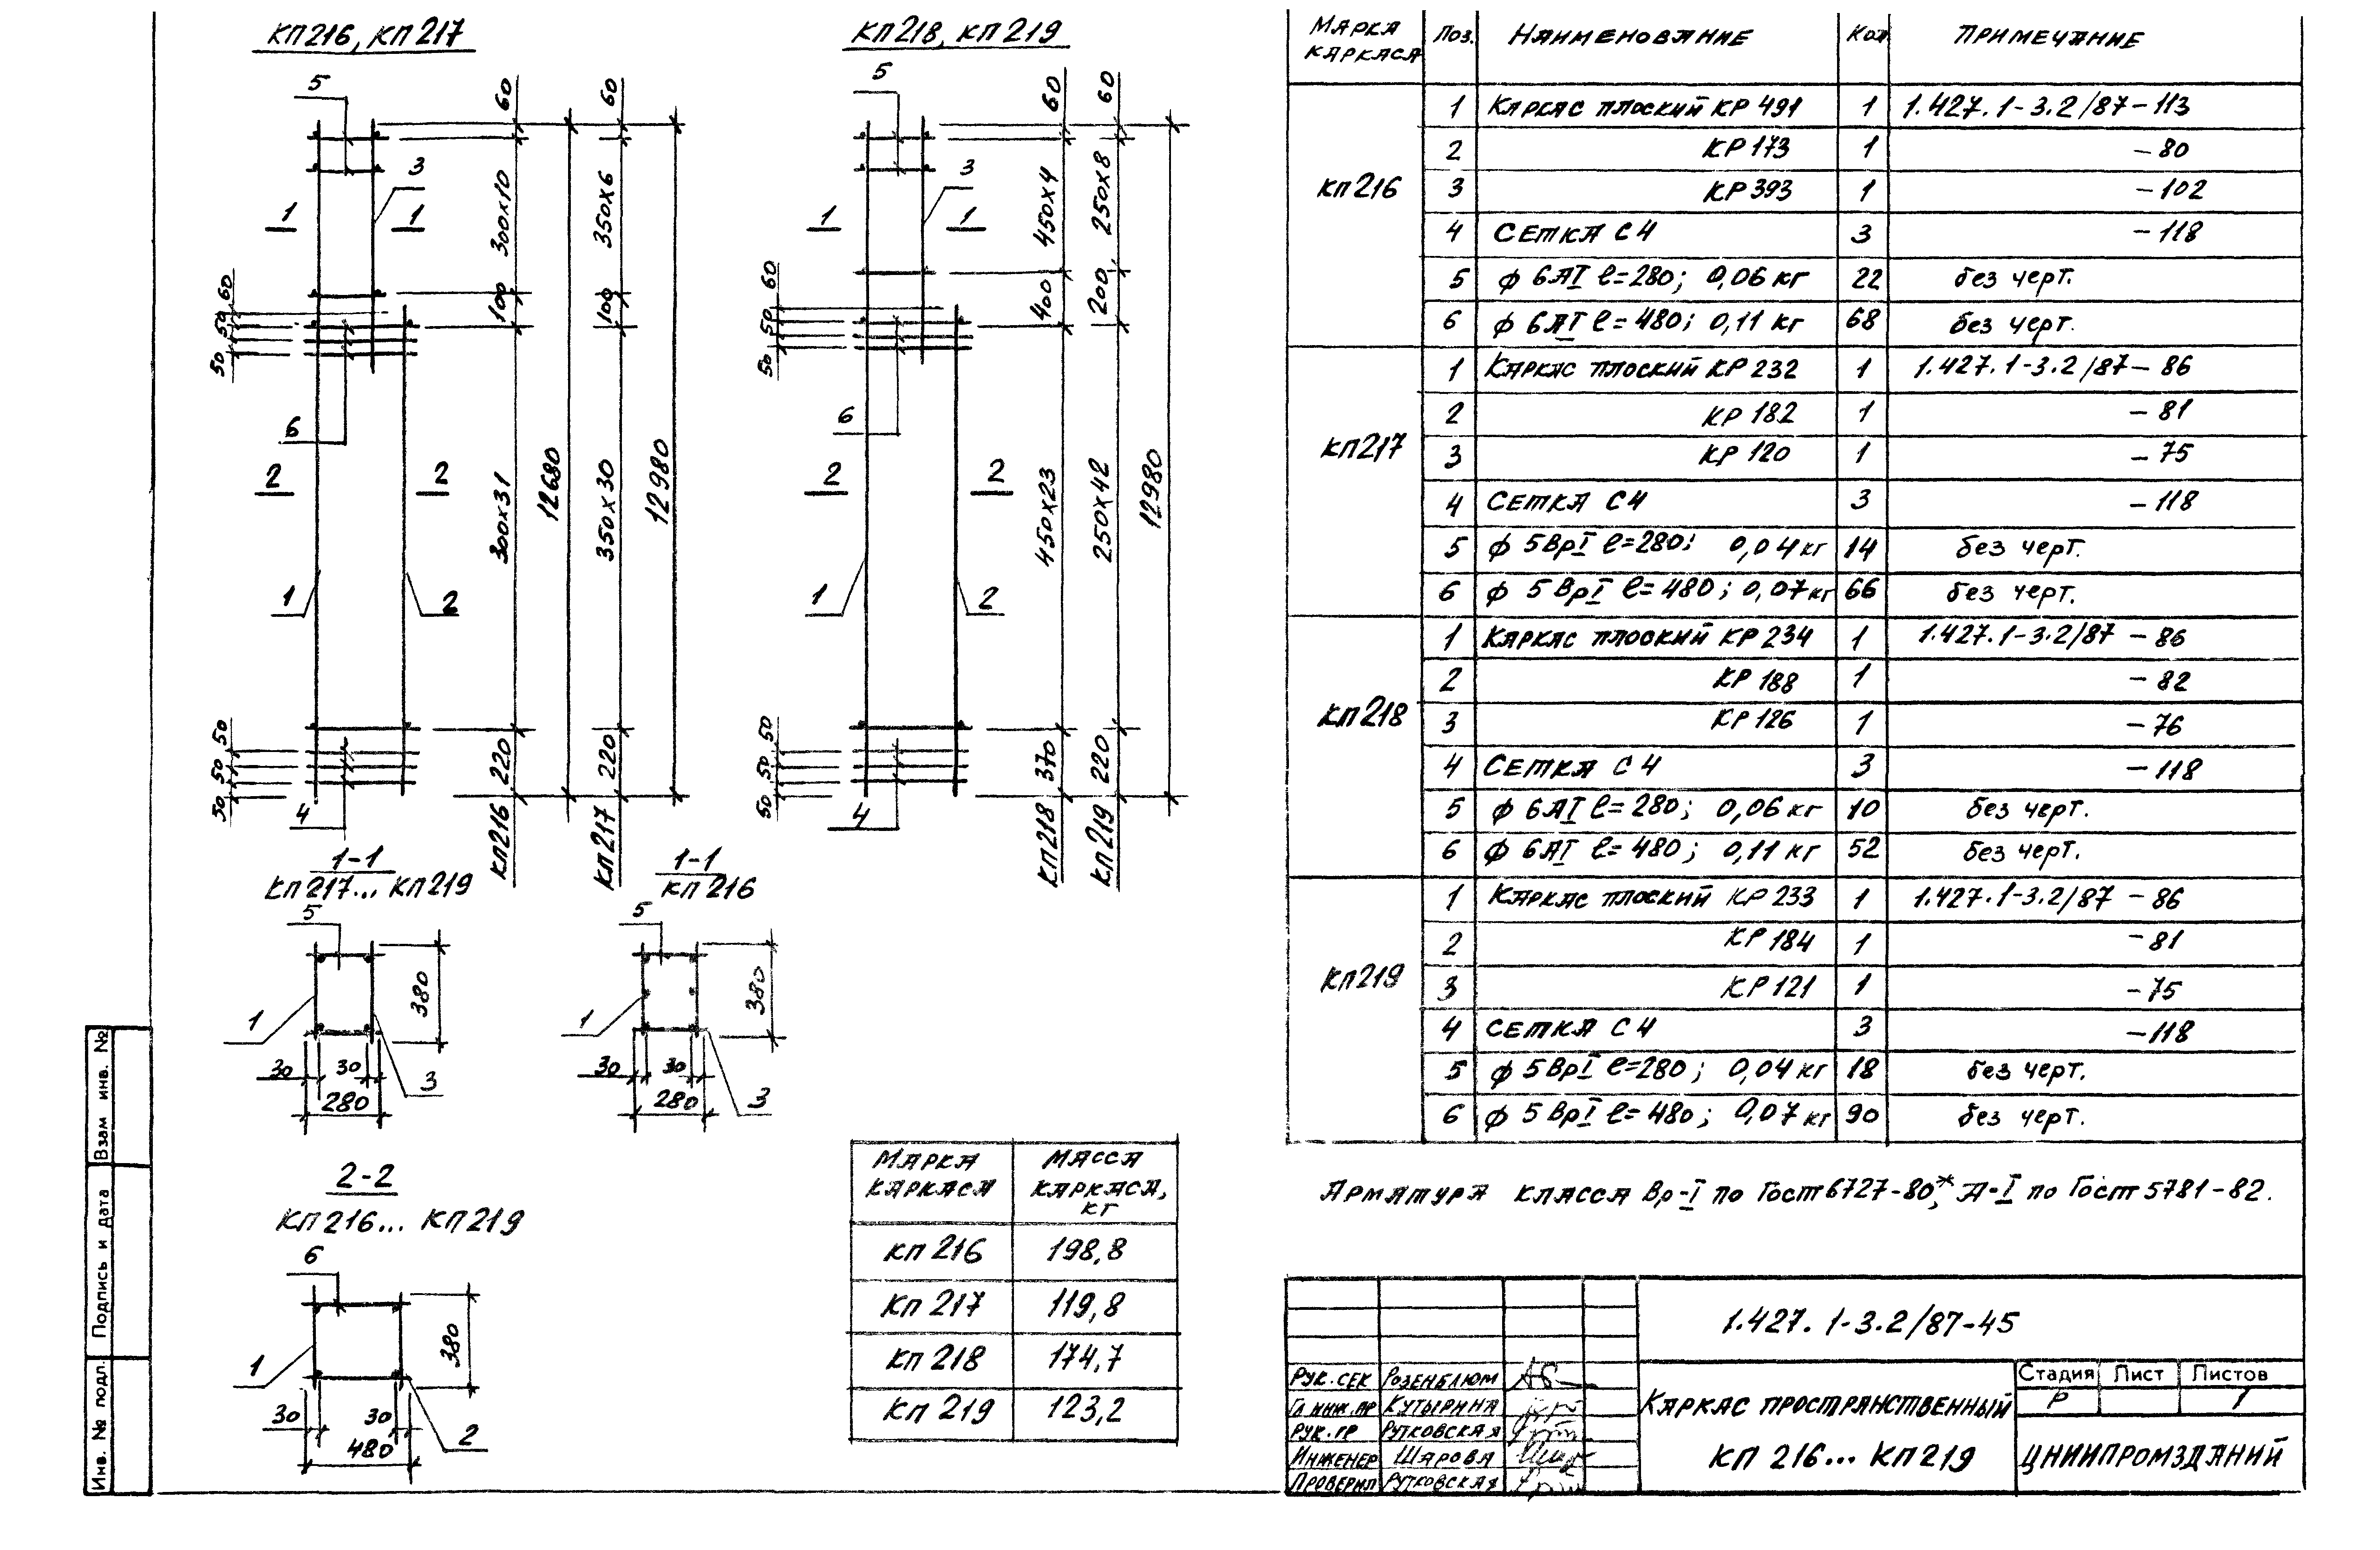 КП216, КП217
5
3
1 1
60
300×10
100
300×31
220
КП216
12680
60
350×6
100
350×30
220
КП217
12980
60
50
50
6
2 2
1 2
50
50
50
4
КП218, КП219
5
3
1 1
60
450×4
400
450×23
370
КП218
60
250×8
200
250×42
220
КП219
12980
60
50
50
6
2 2
1 2
50
50
50
4
1-1
КП217... КП219
5
380
1
30 30
3
280
1-1
КП216
5
380
1
30 30
3
280
2-2
КП216... КП219
6
380
1
30 30
2
480
Марка каркаса Масса каркаса, кг
КП 216 198,8
КП 217 119,8
КП 218 174,7
КП 219 123,2
Марка каркаса Поз. Наименование Кол Примечание
КП216
1 Каркас плоский КР 491 1 1.427.1-3.2/87-113
2 КР 173 1 -80
3 КР 393 1 -102
4 Сетка С4 3 -118
5 ф 6АI ℓ=280; 0,06 кг 22 без черт.
6 ф 6АI ℓ=480; 0,11 кг 68 без черт.
КП217
1 Каркас плоский КР 232 1 1.427.1-3.2/87-86
2 КР 182 1 -81
3 КР 120 1 -75
4 Сетка С4 3 -118
5 ф 5ВрI ℓ=280; 0,04 кг 14 без черт.
6 ф 5ВрI ℓ=480; 0,07 кг 66 без черт.
КП218
1 Каркас плоский КР 234 1 1.427.1-3.2/87 -86
2 КР 188 1 -82
3 КР 126 1 -76
4 Сетка С4 3 -118
5 ф 6АI ℓ=280; 0,06 кг 10 без черт.
6 ф 6АI ℓ=480; 0,11 кг 52 без черт.
КП219
1 Каркас плоский КР 233 1 1.427.1-3.2/87 -86
2 КР 184 1 -81
3 КР 121 1 -75
4 Сетка С4 3 -118
5 ф 5ВрI ℓ=280; 0,04 кг 18 без черт.
6 ф 5ВрI ℓ=480; 0,07 кг 90 без черт.
Арматура класса Вр-I по Гост 6727-80*, А-I по Гост 5781-82.
1.427.1-3.2/87-45
Рук. сек Розенблюм
Гл. инж. пр Кутырина
Рук. гр Рутковская
Инженер Шарова
Проверил Рутковская
Каркас пространственный
КП 216... КП219
Стадия Лист Листов
Р 1
ЦНИИПРОМЗДАНИЙ
Взам инв. №
Подпись и дата
Инв. № подл.